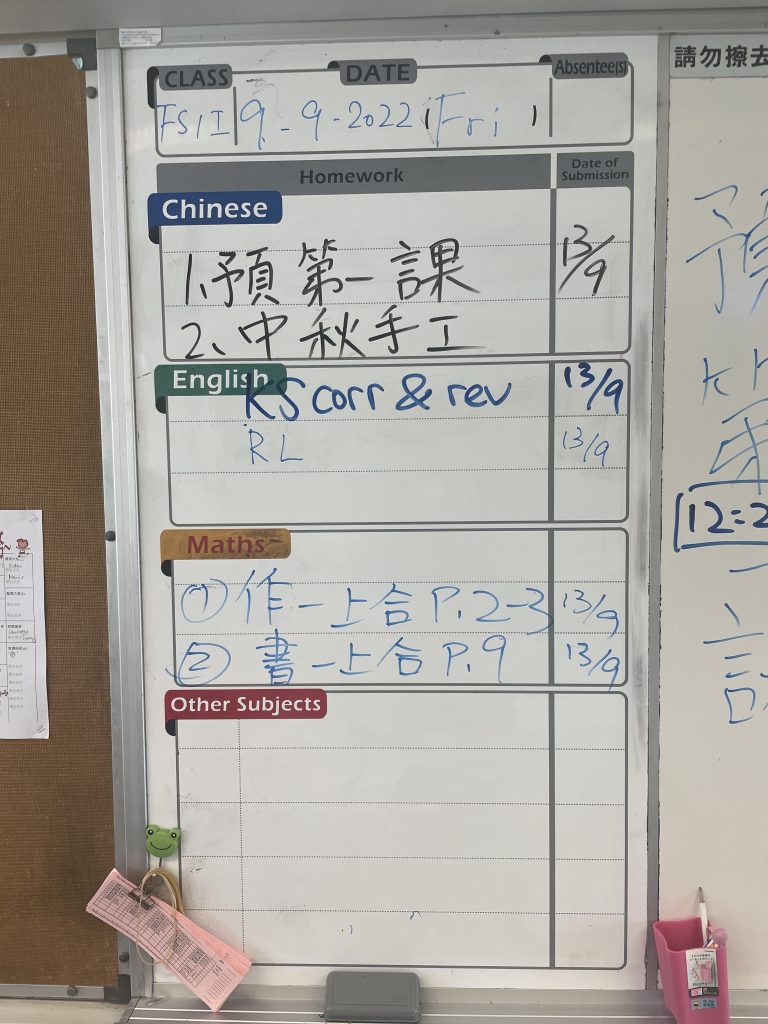 CLASS DATE Absentee(s)
9-9-2022 (Fri)
Homework Date of Submission
Chinese
1.預第一課 13/9
2、中秋手工
English
KS corr & rev 13/9
RL 13/9
Maths
① 作一上合 P.2-3 13/9
② 書一上合 P.9 13/9
Other Subjects
請勿擦去
預
12=2